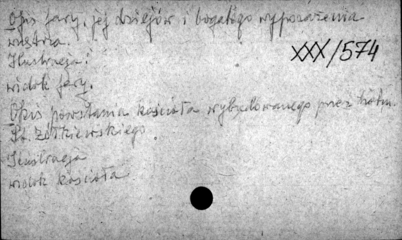 Opis fary, jej dziejów i bogatego wyposażenia
wnętrza.
XXX/574
Ilustracja:
widok fary.
Opis powstania kościoła wybudowanego przez hetm.
St. Żółkiewskiego.
Ilustracja
widok kościoła